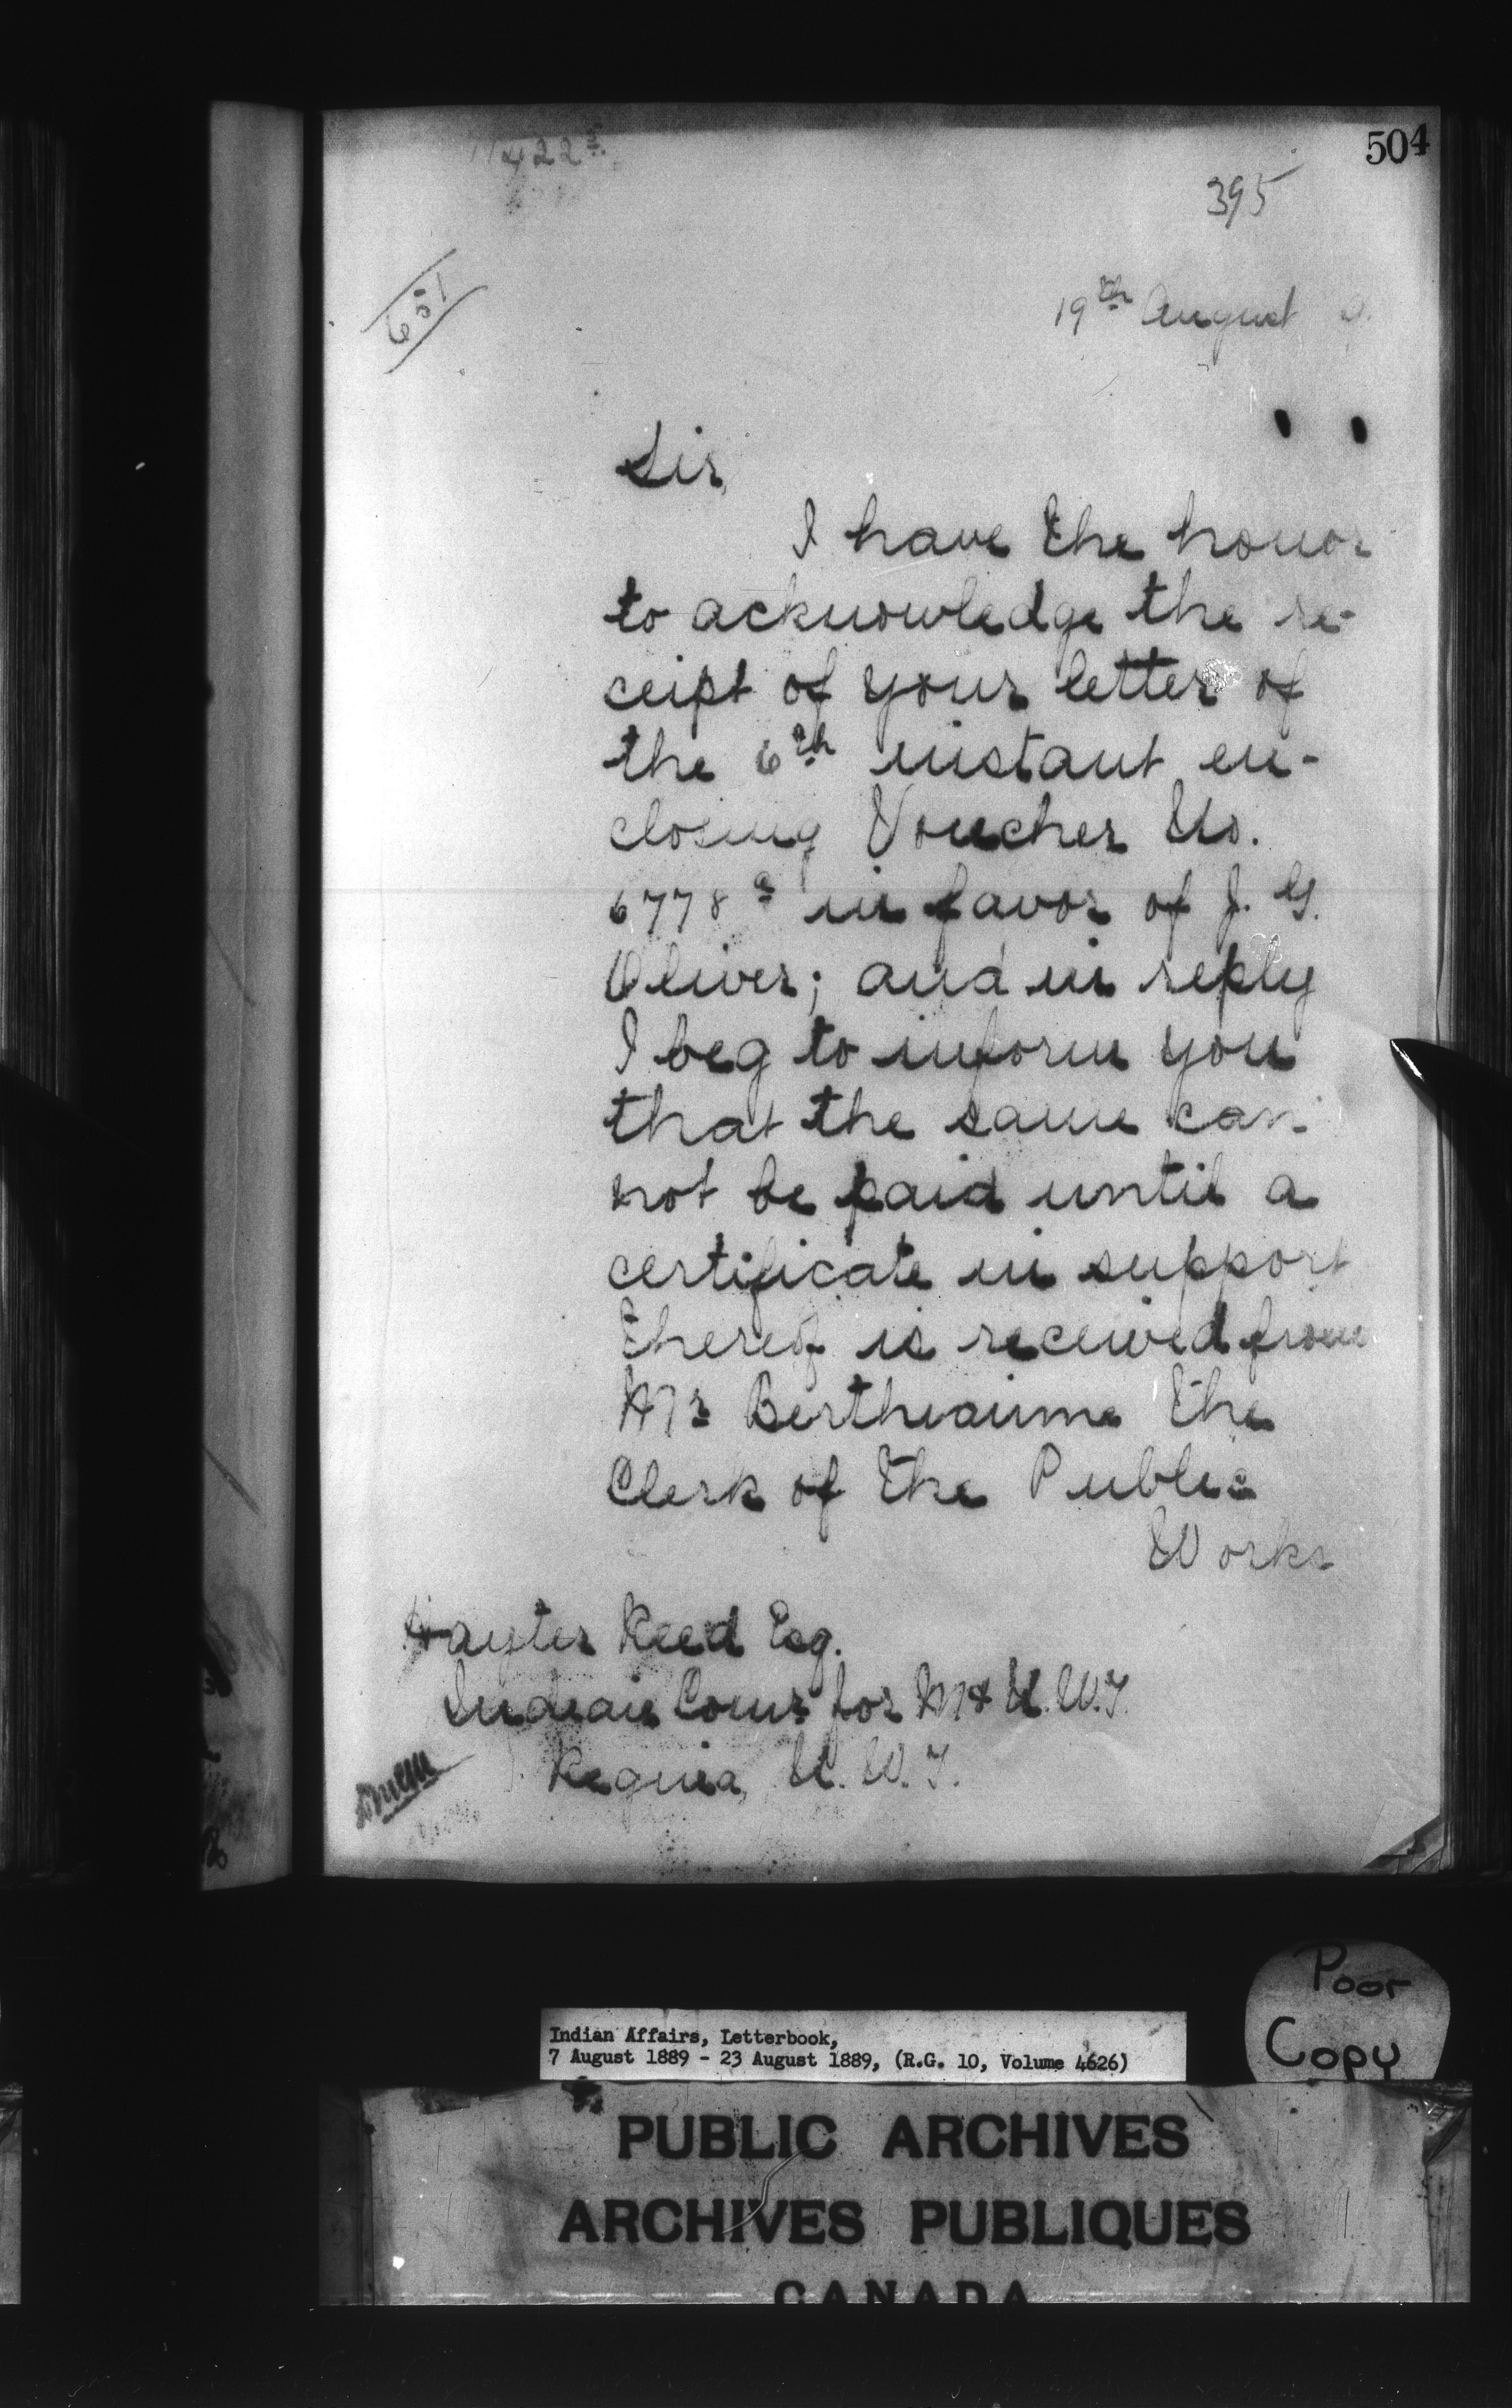 504
395
19th August
Sir,
I have the honor
to acknowledge the re-
ceipt of your letter of
the 6th instant en-
closing Voucher No.
6778a in favor of J. G.
Oliver; and in reply
I beg to inform you
that the same can-
not be paid until a
certificate in support
thereof is received from
Mr Bertheaume the
Clerk of the Public
Works
Hayter Reed Esq.
Indian Comr for M & N.W.T.
Regina, N.W.T.
Poor
Copy
Indian Affairs, Letterbook,
7 August 1889 - 23 August 1889, (R.G. 10, Volume 4626)
PUBLIC ARCHIVES
ARCHIVES PUBLIQUES
CANADA